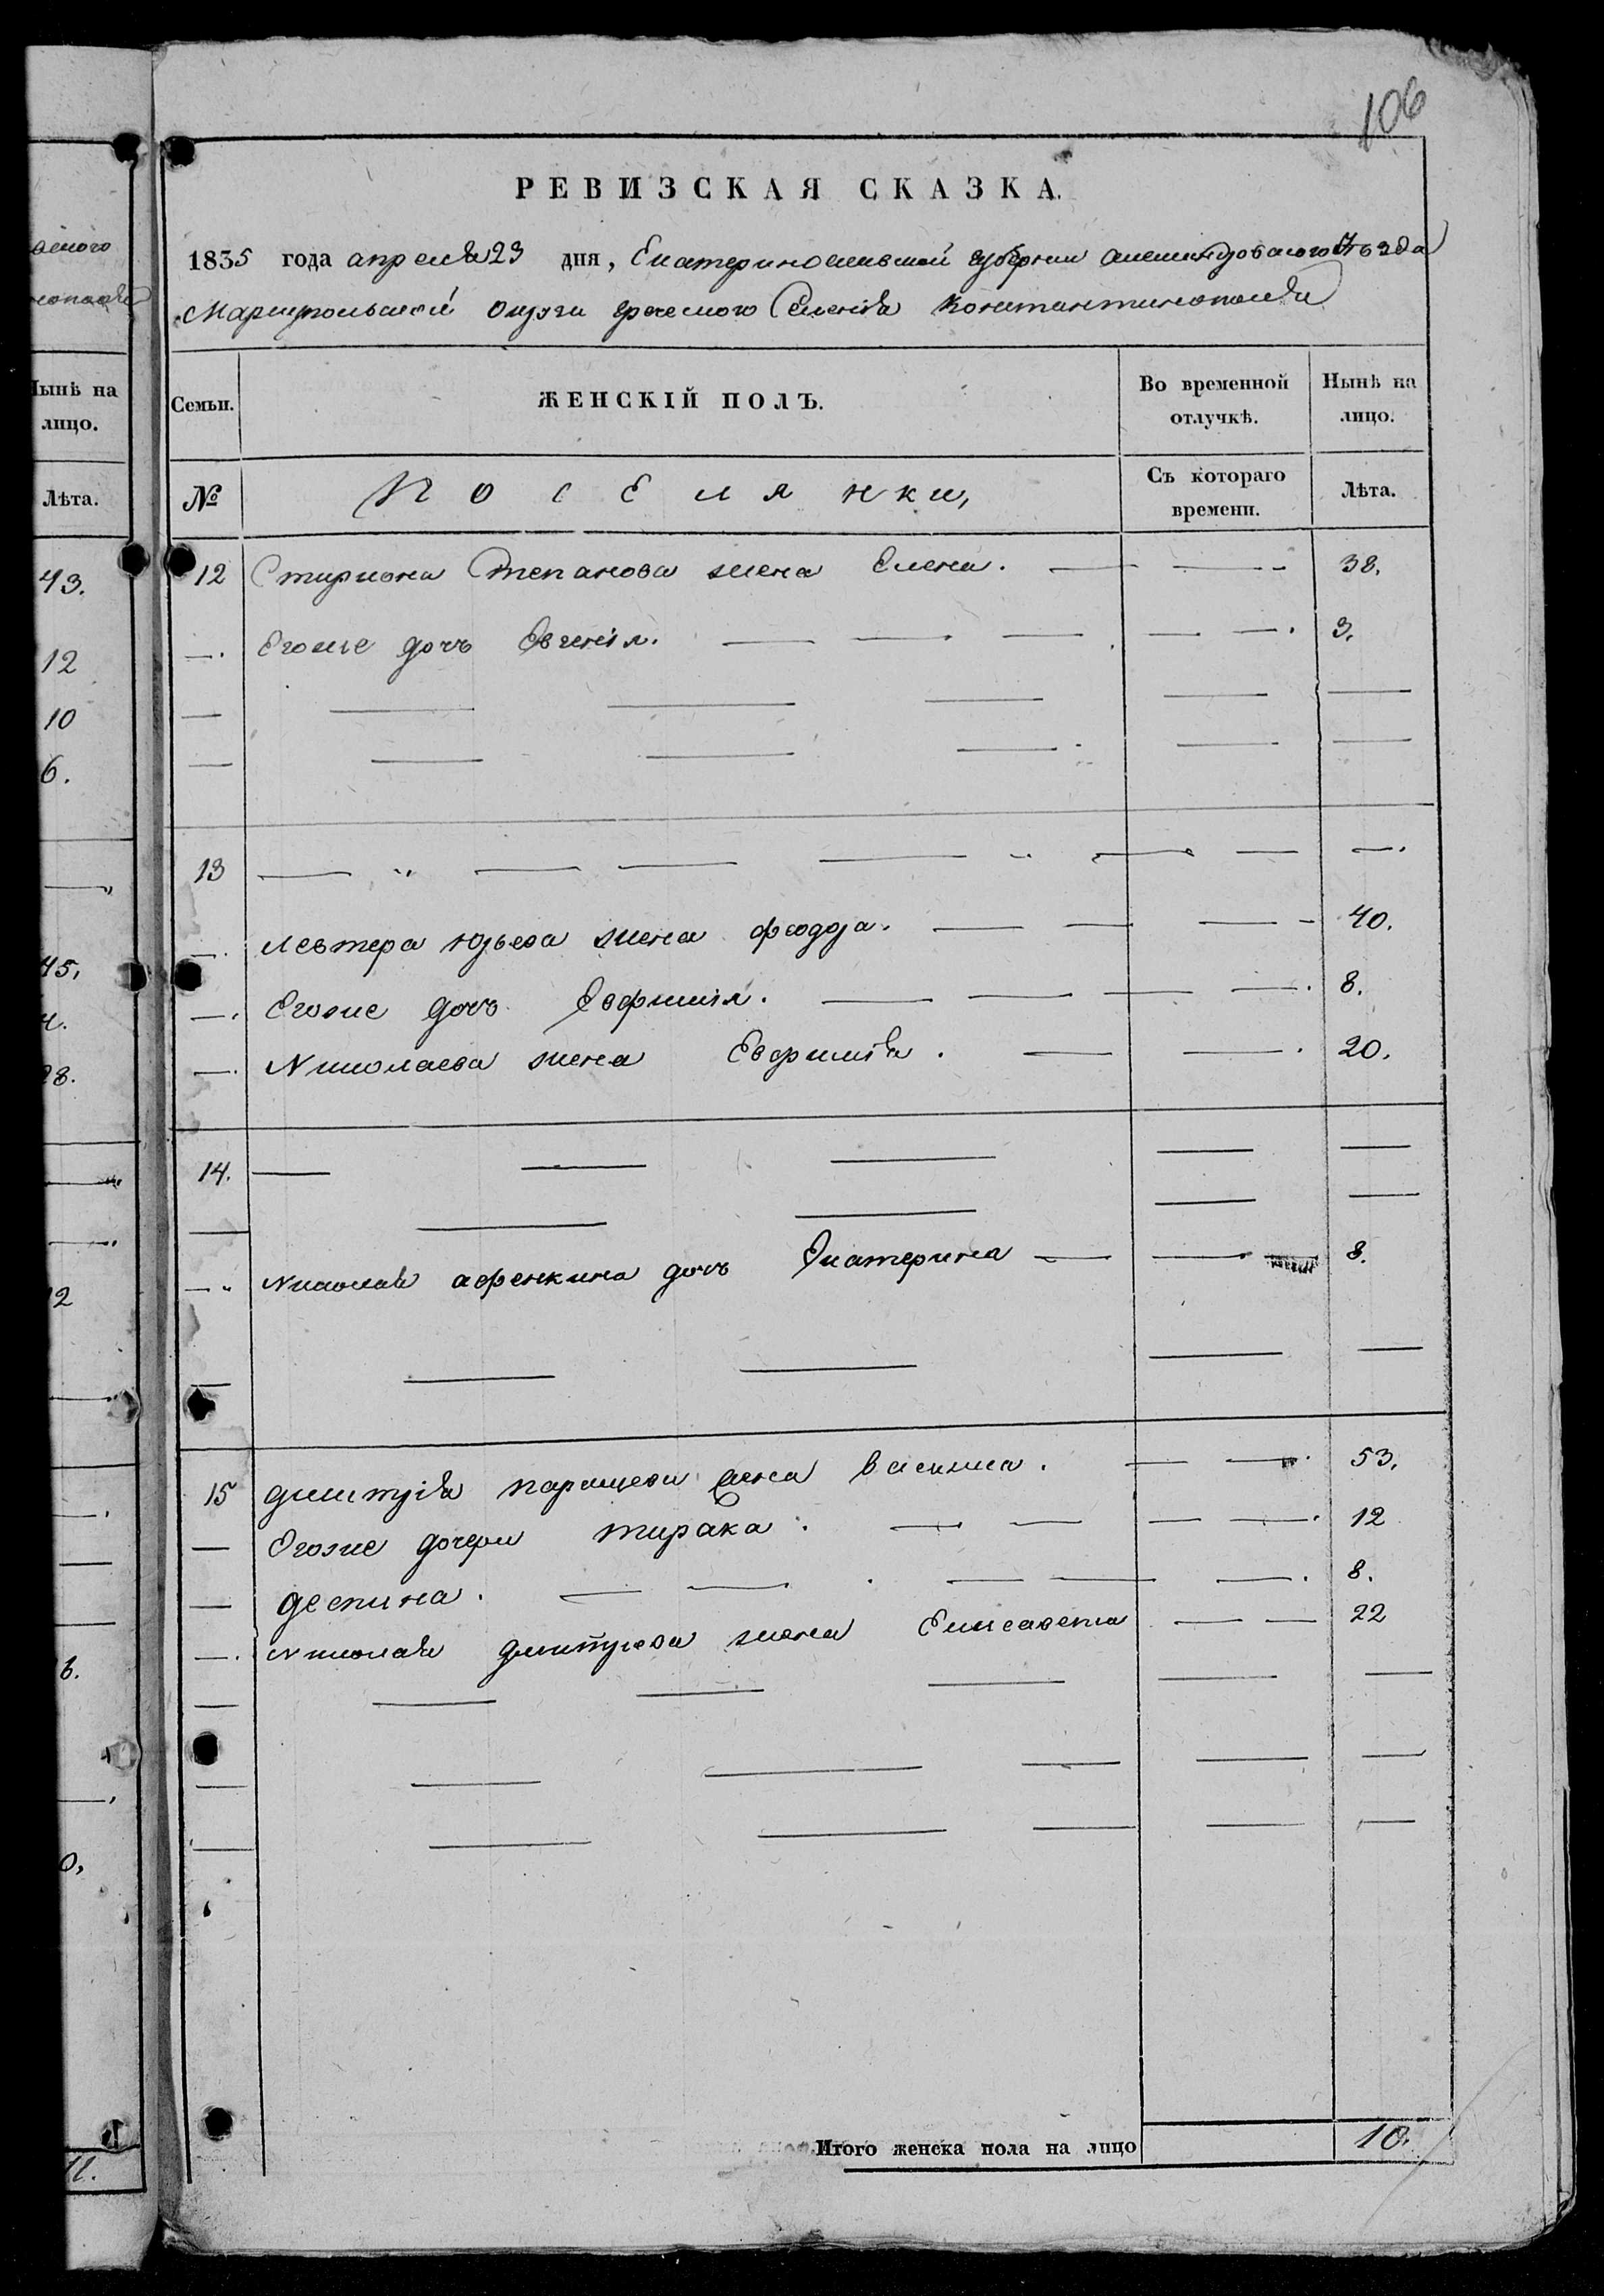 106
РЕВИЗСКАЯ СКАЗКА.
1835 года апреля 23 дня, Екатеринослаской губернии александровского уѣзда
Мариупольской округи греческого Селенія Константинополя
Семьи.
ЖЕНСКІЙ ПОЛЪ.
Во временной отлучкѣ.
Нынѣ на лицо.
№
Поселянки,
Съ котораго времени.
Лѣта.
12 Стириона Степанова жена Елена. 38.
Егоже дочь Евгенія. 3.
13
Левтера юрьева жена феодора. 40.
Егоже дочь Евфимія. 8.
Николаева жена Евфимія. 20.
14.
Николая афенкина дочь Екатерина 8.
15 дмитрія паращеви жена василиса. 53.
Егоже дочери тирака. 12
деспина. 8.
Николая дмитриева жена Елисавета 22
Итого женска пола на лицо 10.
Нынѣ на
лицо.
Лѣта.
43.
12
10
6.
45.
28.
12